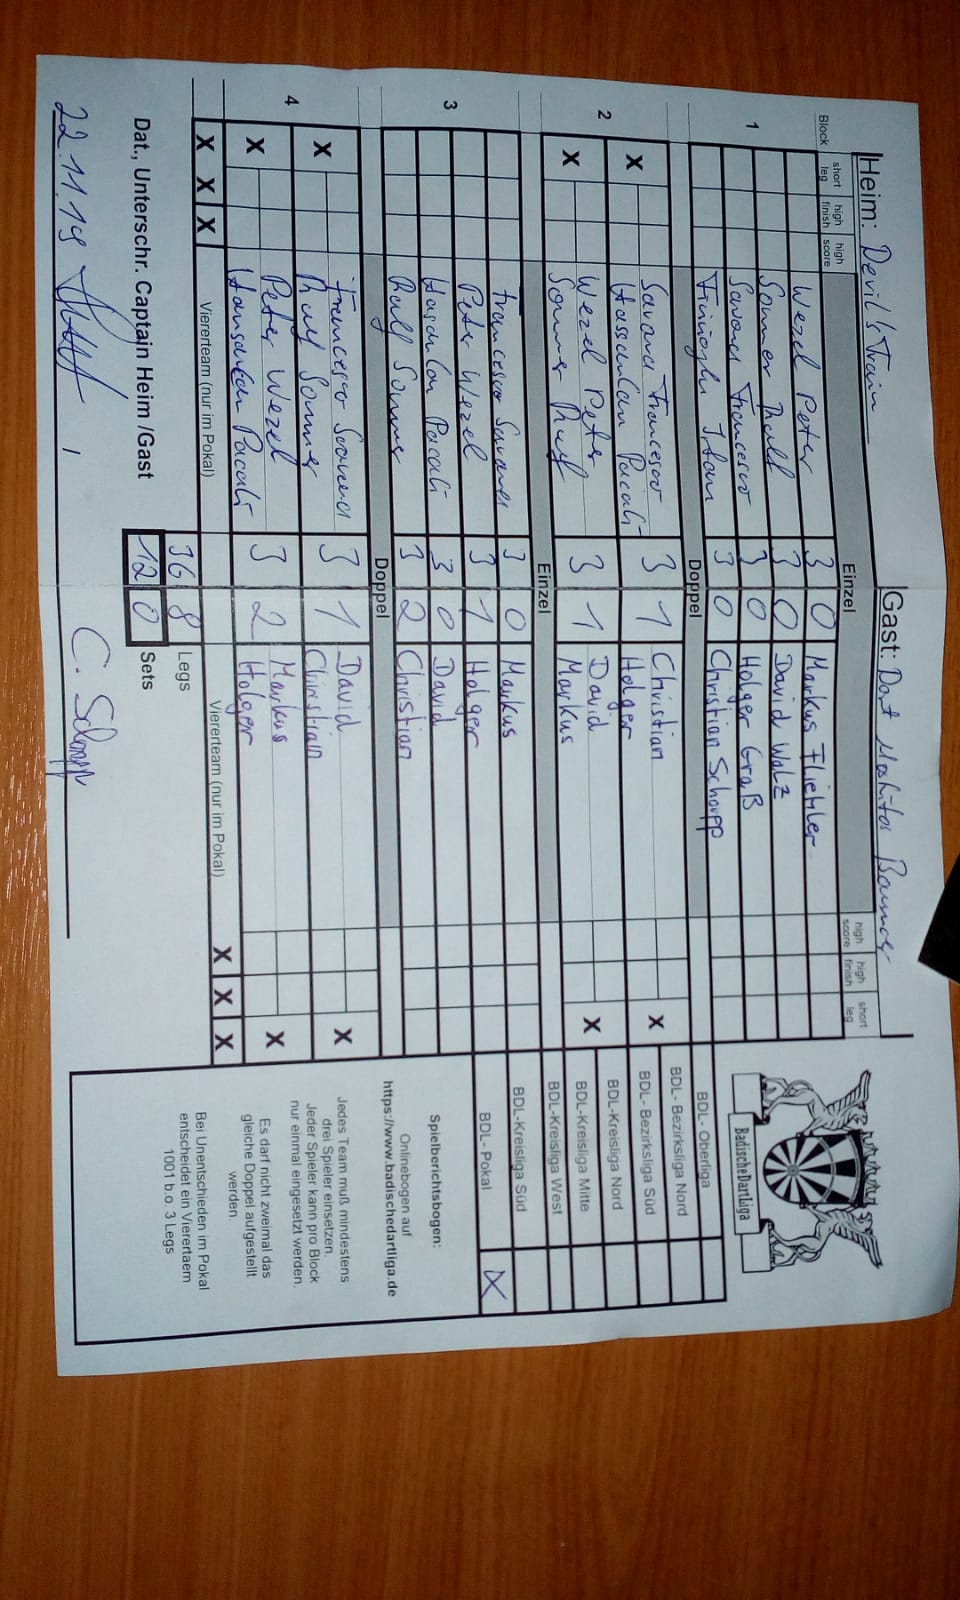 Heim: Devil's Train
Gast: Dart Moskitos
Block short leg high finish high score Einzel high score high finish short leg
1
Wezel Peter 3 0 Markus
Sommer Ralf 3 0 David Walz
Savona Francesco 3 0 Holger Graß
3 0 Christian Schopp
Doppel
2
X Savona Francesco 3 1 Christian X
Hassancan Pacali Holger
X Wezel Peter 3 1 David X
Sommer Ralf Markus
Einzel
3
Francesco Savona 3 0 Markus
Peter Wezel 3 1 Holger
Hasancan Pacali 3 0 David
Ralf Sommer 3 2 Christian
Doppel
4
X Francesco Savona 3 1 David X
Ralf Sommer Christian
X Peter Wezel 3 2 Markus X
Hansancan Pacali Holger
X X X Viererteam (nur im Pokal) Viererteam (nur im Pokal) X X X
36 8 Legs
12 0 Sets
Dat., Unterschr. Captain Heim /Gast
22.11.19 / C. Schopp
BadischeDartLiga
BDL- Oberliga
BDL- Bezirksliga Nord
BDL- Bezirksliga Süd
BDL-Kreisliga Nord
BDL-Kreisliga Mitte
BDL-Kreisliga West
BDL-Kreisliga Süd
BDL- Pokal X
Spielberichtsbogen:
Onlinebogen auf
https://www.badischedartliga.de
Jedes Team muß mindestens
drei Spieler einsetzen.
Jeder Spieler kann pro Block
nur einmal eingesetzt werden.
Es darf nicht zweimal das
gleiche Doppel aufgestellt
werden.
Bei Unentschieden im Pokal
entscheidet ein Vierertaem
1001 b.o. 3 Legs